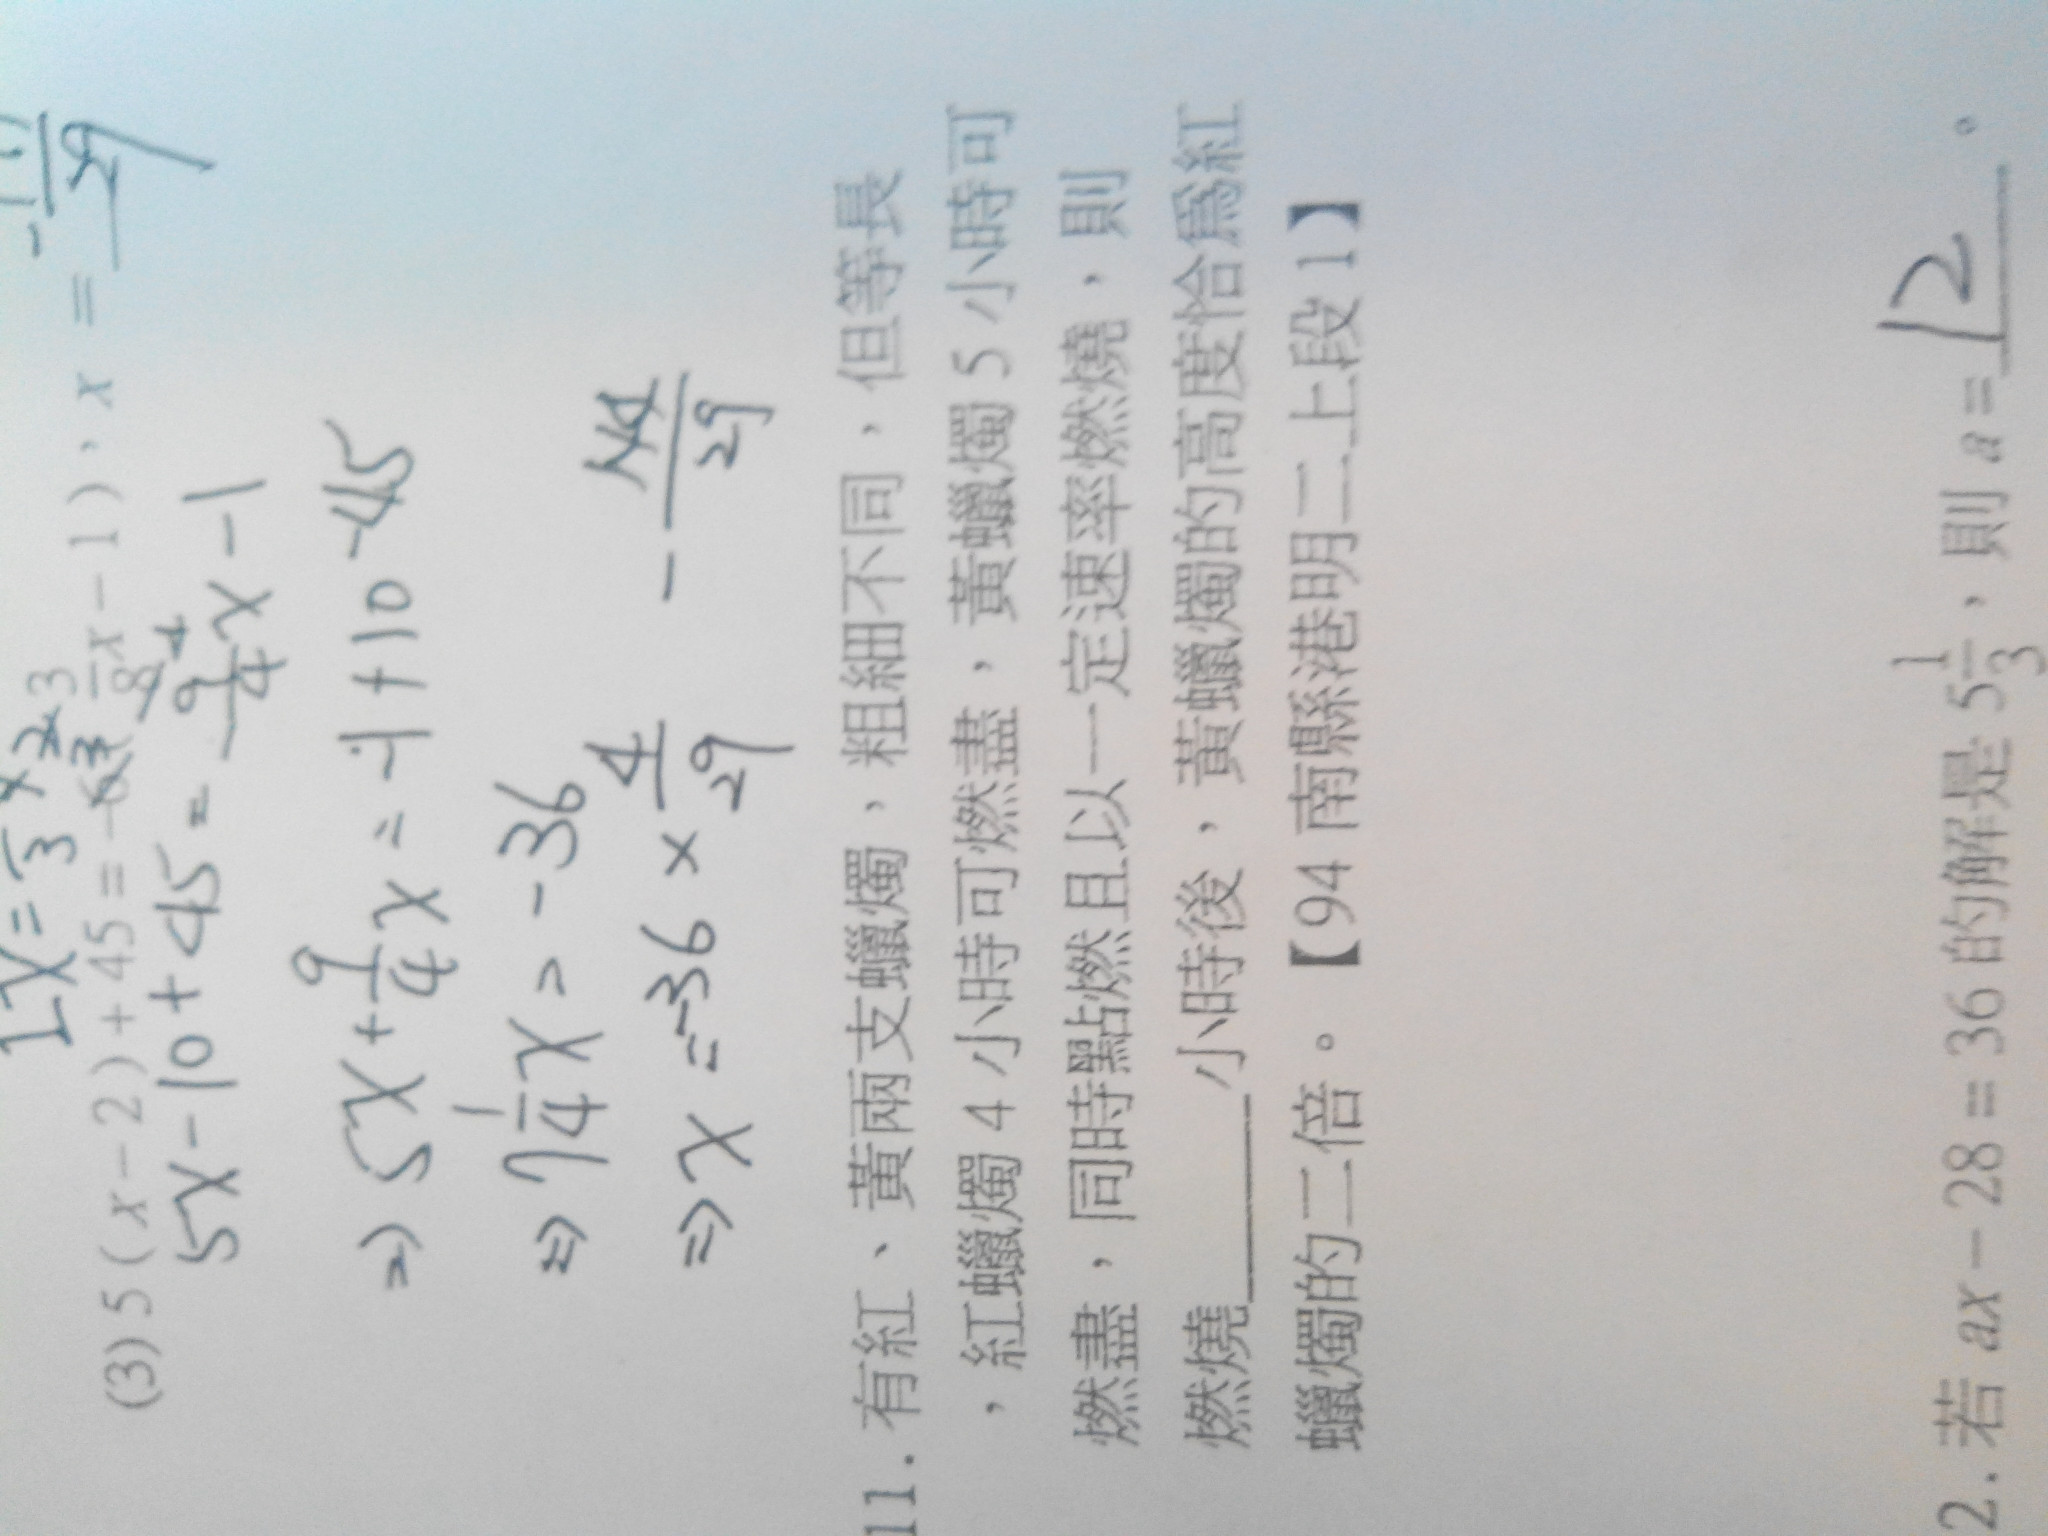 (3) 5(x-2)+45=-6(3/8x-1),x=
5x-10+45=-9/4x-1
⇒ 5x+9/4x=-1+10-45
⇒ 7 1/4x=-36
⇒ x=-36×4/29 -144/29
11.有紅、黃兩支蠟燭,粗細不同,但等長
,紅蠟燭4小時可燃盡,黃蠟燭5小時可
燃盡,同時點燃且以一定速率燃燒,則
燃燒______小時後,黃蠟燭的高度恰為紅
蠟燭的二倍。【94南縣港明二上段1】
2.若ax-28=36的解是5 1/3,則a=12。